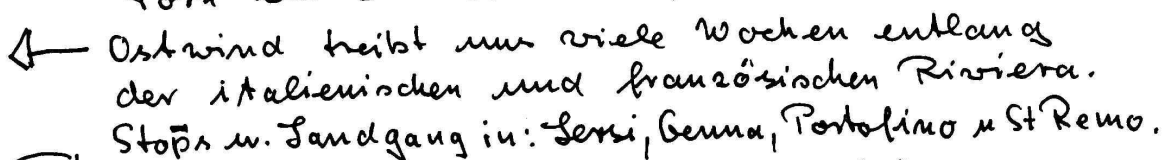 Ostwind treibt uns viele Wochen entlang
der italienischen und französischen Riviera.
Stopps u. Landgang in: Lersi, Genua, Portofino u St Remo.